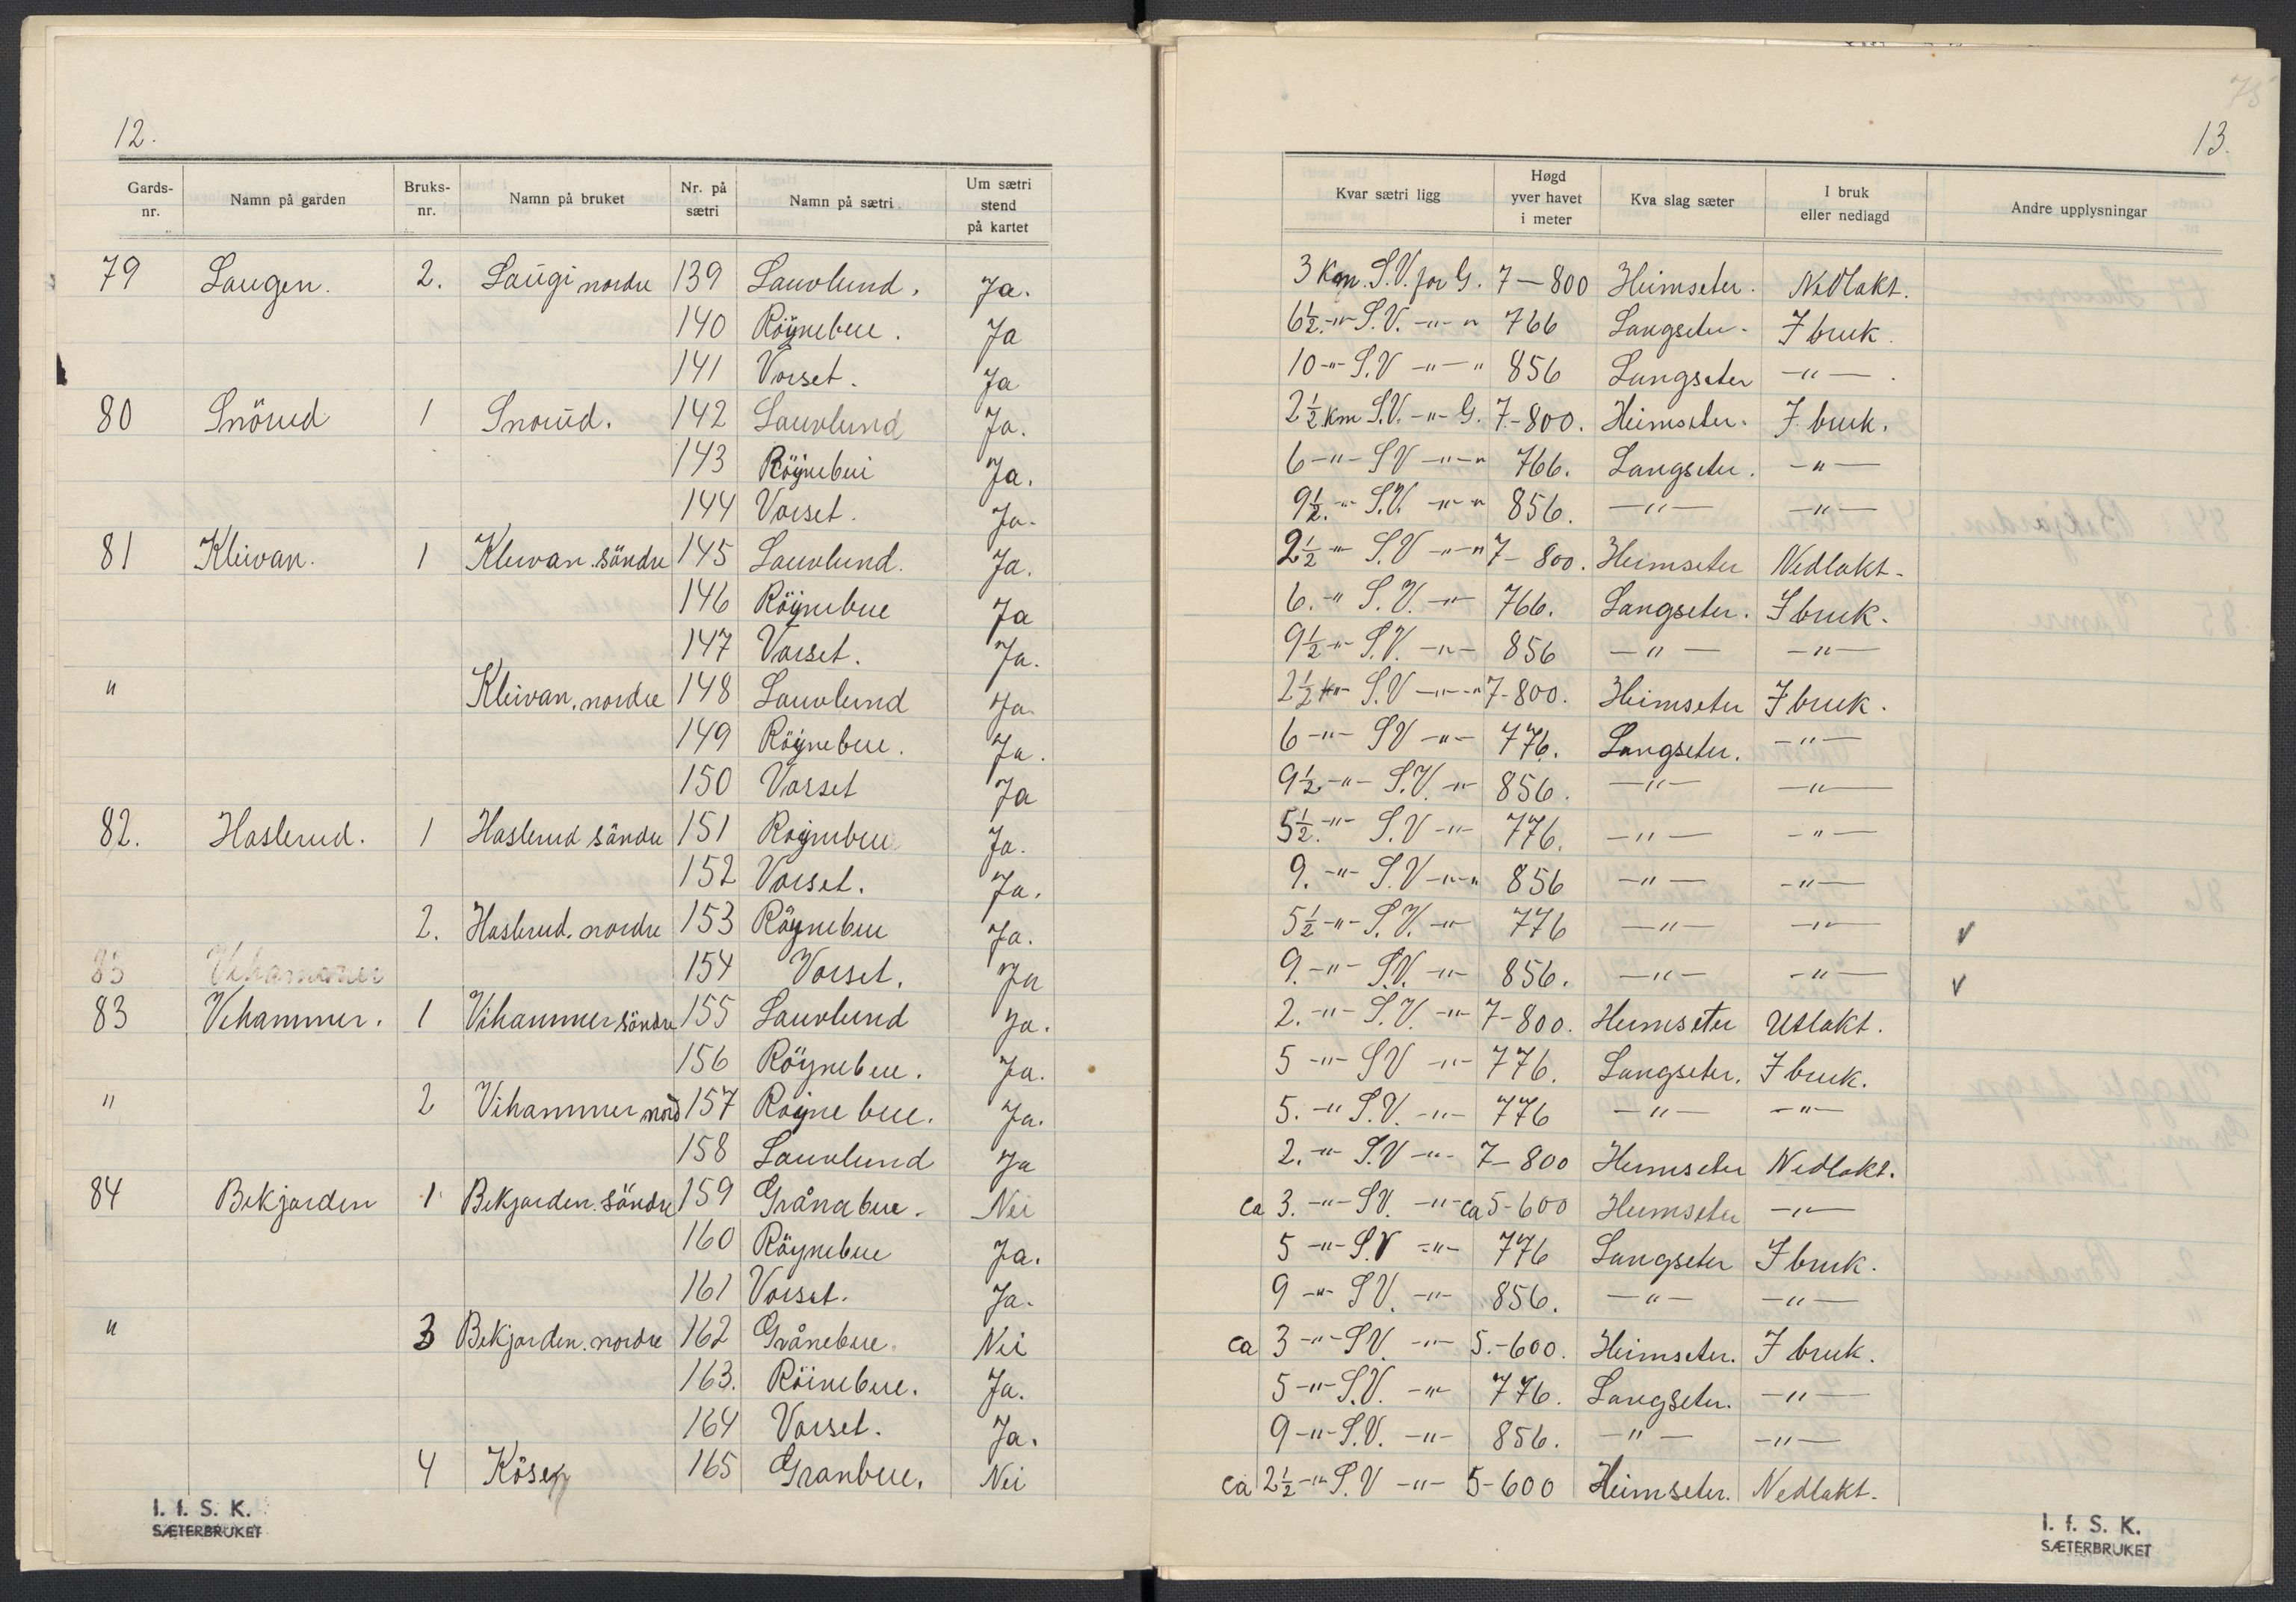 12.
Gards-nr. Namn på garden Bruks-nr. Namn på bruket Nr. på sætri Namn på sætri Um sætri stend på kartet
79 Laugen. 2. Laugi nordre 139 Lauvlund. Ja.
140 Röynebue. Ja
141 Vorset. Ja
80 Snörud 1 Snorud. 142 Lauvlund Ja.
143 Röynebui Ja.
144 Vorset. Ja.
81 Kleivan. 1 Kleivan söndre 145 Lauvlund. Ja.
146 Röynebue Ja
147 Vorset. Ja.
" Kleivan, nordre 148 Lauvlund Ja.
149 Röynebue. Ja.
150 Vorset Ja
82. Haslerud. 1 Haslerud söndre 151 Röynebue Ja.
152 Vorset. Ja.
2. Haslerud. nordre 153 Röynebue Ja.
83 Vehammer 154 Vorset. Ja
83 Vehammer. 1 Vihammer söndre 155 Lauvlund Ja.
156 Röynebue. Ja.
" 2 Vihammer nord 157 Röyne bue. Ja.
158 Lauvlund Ja
84 Bekjorden 1 Bekjorden söndre 159 Grånabue. Nei
160 Röynebue Ja.
161 Vorset. Ja.
" 3 Bekjorden. nordre 162 Grånebue Nei
163. Röinebue. Ja.
164 Vorset. Ja.
4 Köser 165 Granbue. Nei
I. f. S. K.
SÆTERBRUKET
75
13.
Kvar sætri ligg Høgd yver havet i meter Kva slag sæter I bruk eller nedlagd Andre upplysningar
3 Km. S.V. for G. 7-800 Heimseter. Nedlakt.
6½ -"- S.V. -"- " 766 Langseter. I bruk.
10 -"- S.V -"- " 856 Langseter -"-.
2½ km S.V. -"- G. 7-800. Heimseter. I bruk.
6 -"- SV -"- " 766. Langseter. -"-
9½. -"- S.V. -"- " 856. -"- -"-
2½ -"- S.V -"- " 7-800. Heimseter Nedlakt.
6. -"- S.V. -"- 766. Langseter. I bruk.
9½ -"- S.V. -"- 856 -"- -"-
2½ -"- S.V -"- " 7-800. Heimseter I bruk.
6 -"- SV -"- 776. Langseter. -"-
9½ -"- S.V. -"- 856. -"- -"-
5½. -"- S.V -"- 776. -"- -"-
9. -"- S.V -"- " 856 -"- -"-
5½ -"- S.V. -"- 776 -"- -"- v
9. -"- S.V. -"- 856. -"- -"- v
2. -"- S.V. -"- 7-800. Heimseter Utlakt.
5 -"- SV -"- 776. Langseter. I bruk.
5. -"- S.V. -"- 776 -"- -"-
2. -"- S.V -"- 7-800 Heimseter Nedlakt.
ca 3. -"- SV. -"- ca 5-600 Heimseter -"-
5 -"- S.V -"- 776 Langseter I bruk.
9 -"- SV. -"- 856. -"- -"-
ca 3 -"- SV. -"- 5.-600. Heimseter. I bruk.
5 -"- S.V. -"- 776. Langseter. -"-
9 -"- S.V. -"- 856. -"- -"-
ca 2½ -"- S.V -"- 5-600 Heimseter. Nedlakt.
I. f. S. K.
SÆTERBRUKET